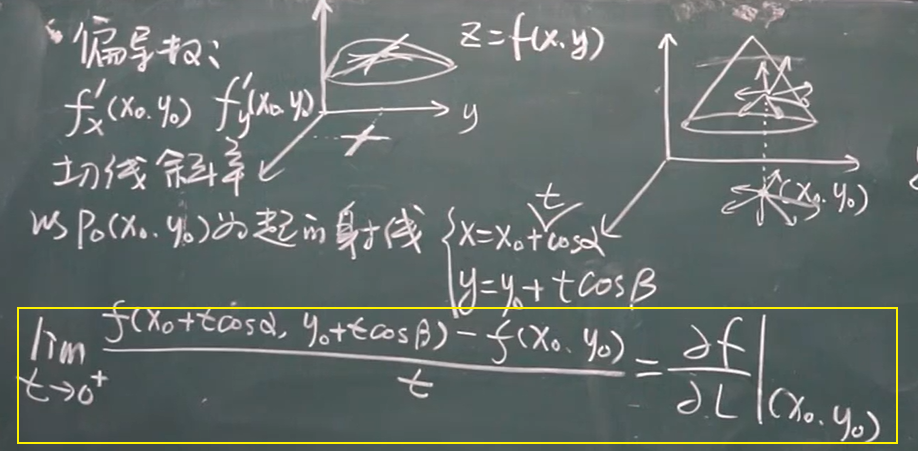 偏导数:
z=f(x.y)
f'x(x0.y0) f'y(x0.y0)
y
切线斜率
(x0.y0)
以P0(x0.y0)为起的射线 {x=x0+tcosα
y=y0+tcosβ
lim t→0+ f(x0+tcosα, y0+tcosβ)-f(x0.y0) / t = ∂f/∂L |(x0.y0)